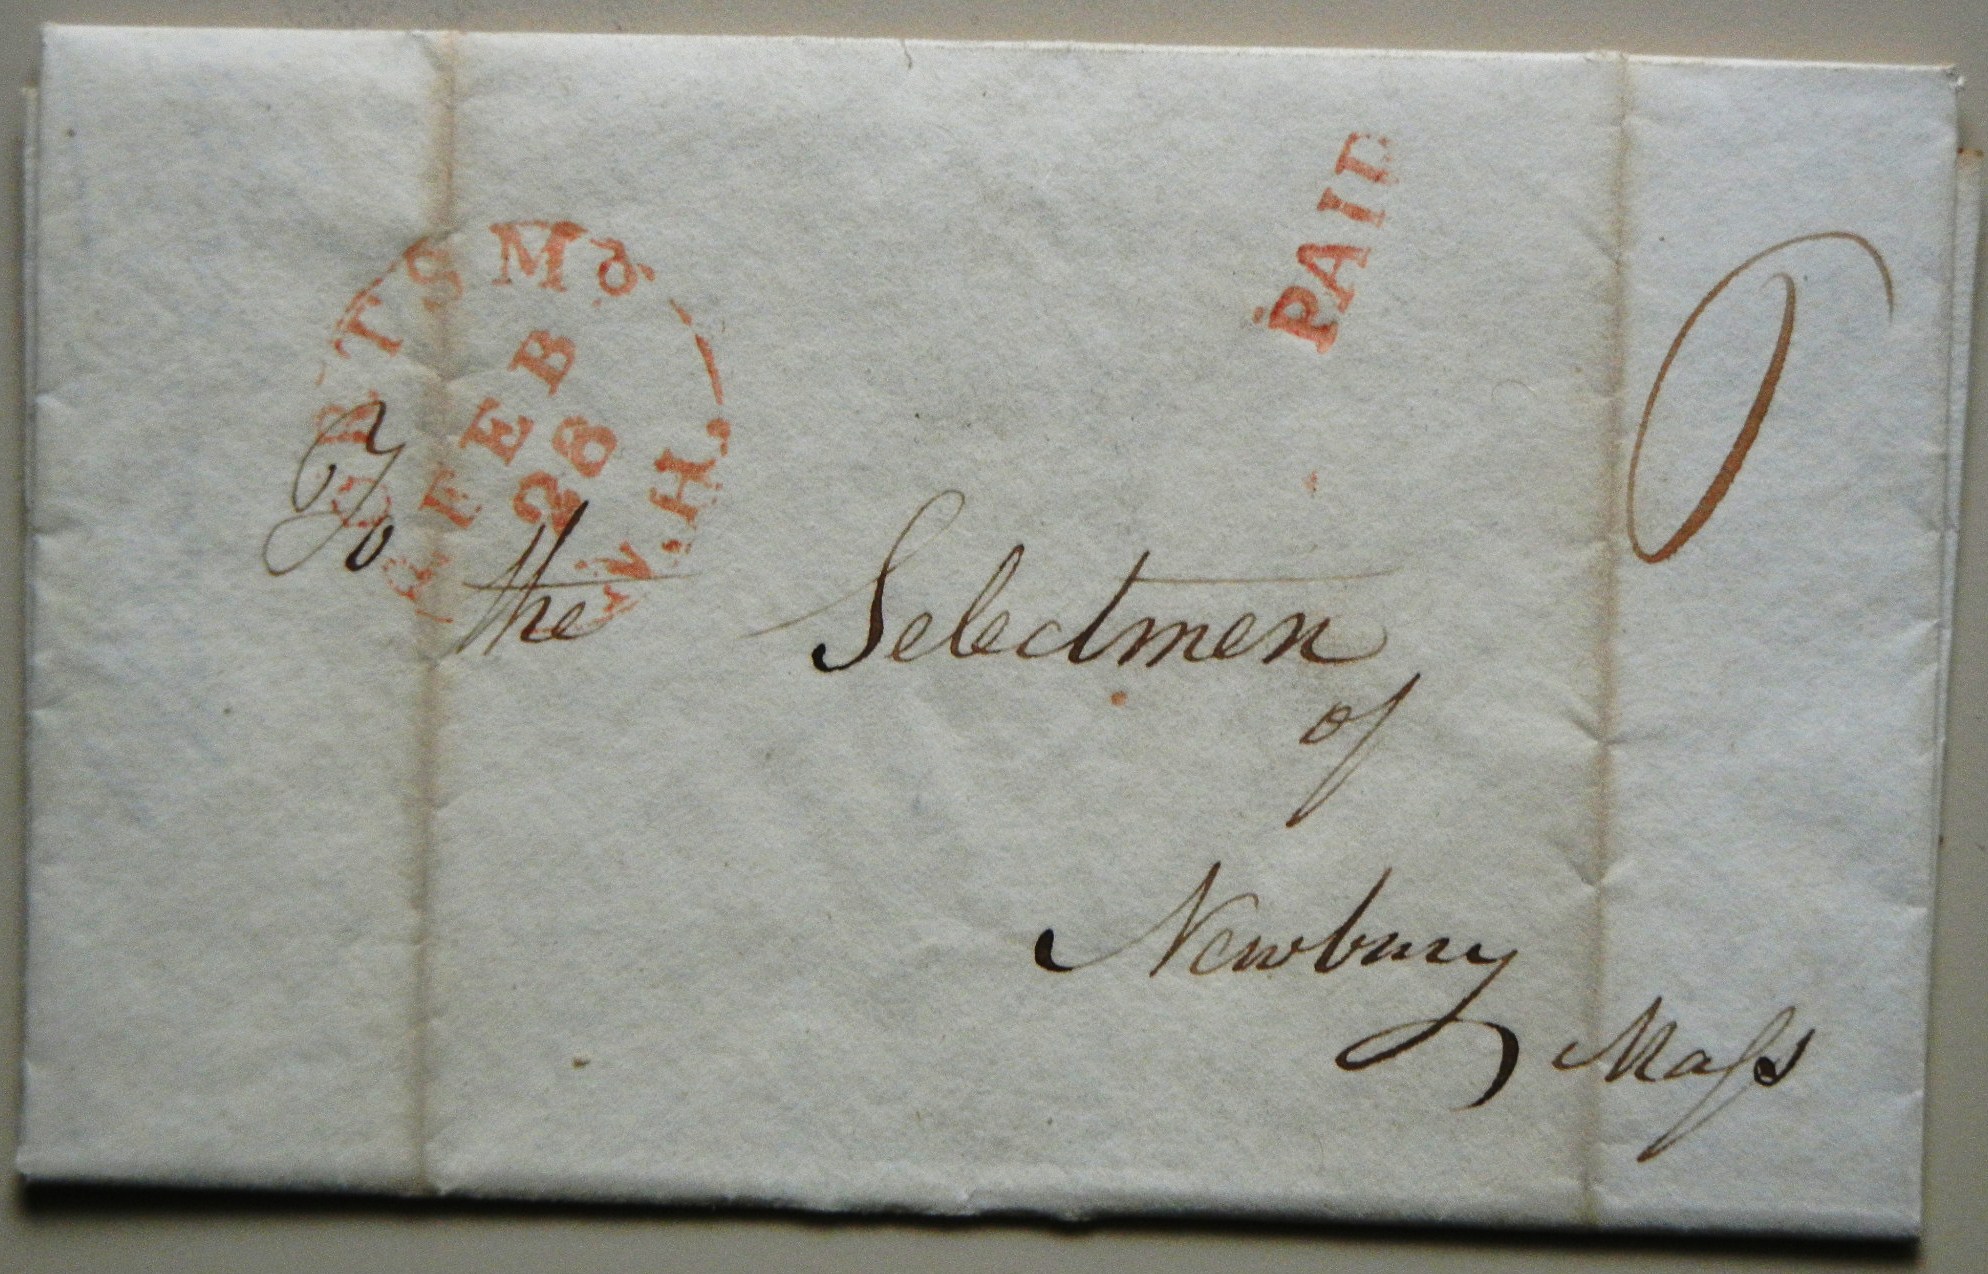 PORTSMO
FEB
28
N.H.
PAID
6
To
the Selectmen
of
Newbury
Maſs